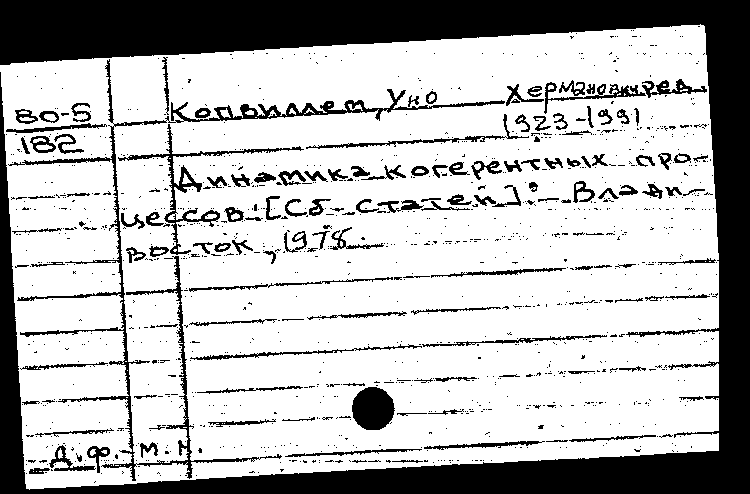 80-5
182
Копвиллем, Уно Херманович, ред.
1923-1991
Динамика когерентных про-
цессов: [Сб. статей]. - Влади-
восток, 1978.
Д.ф.-м.н.